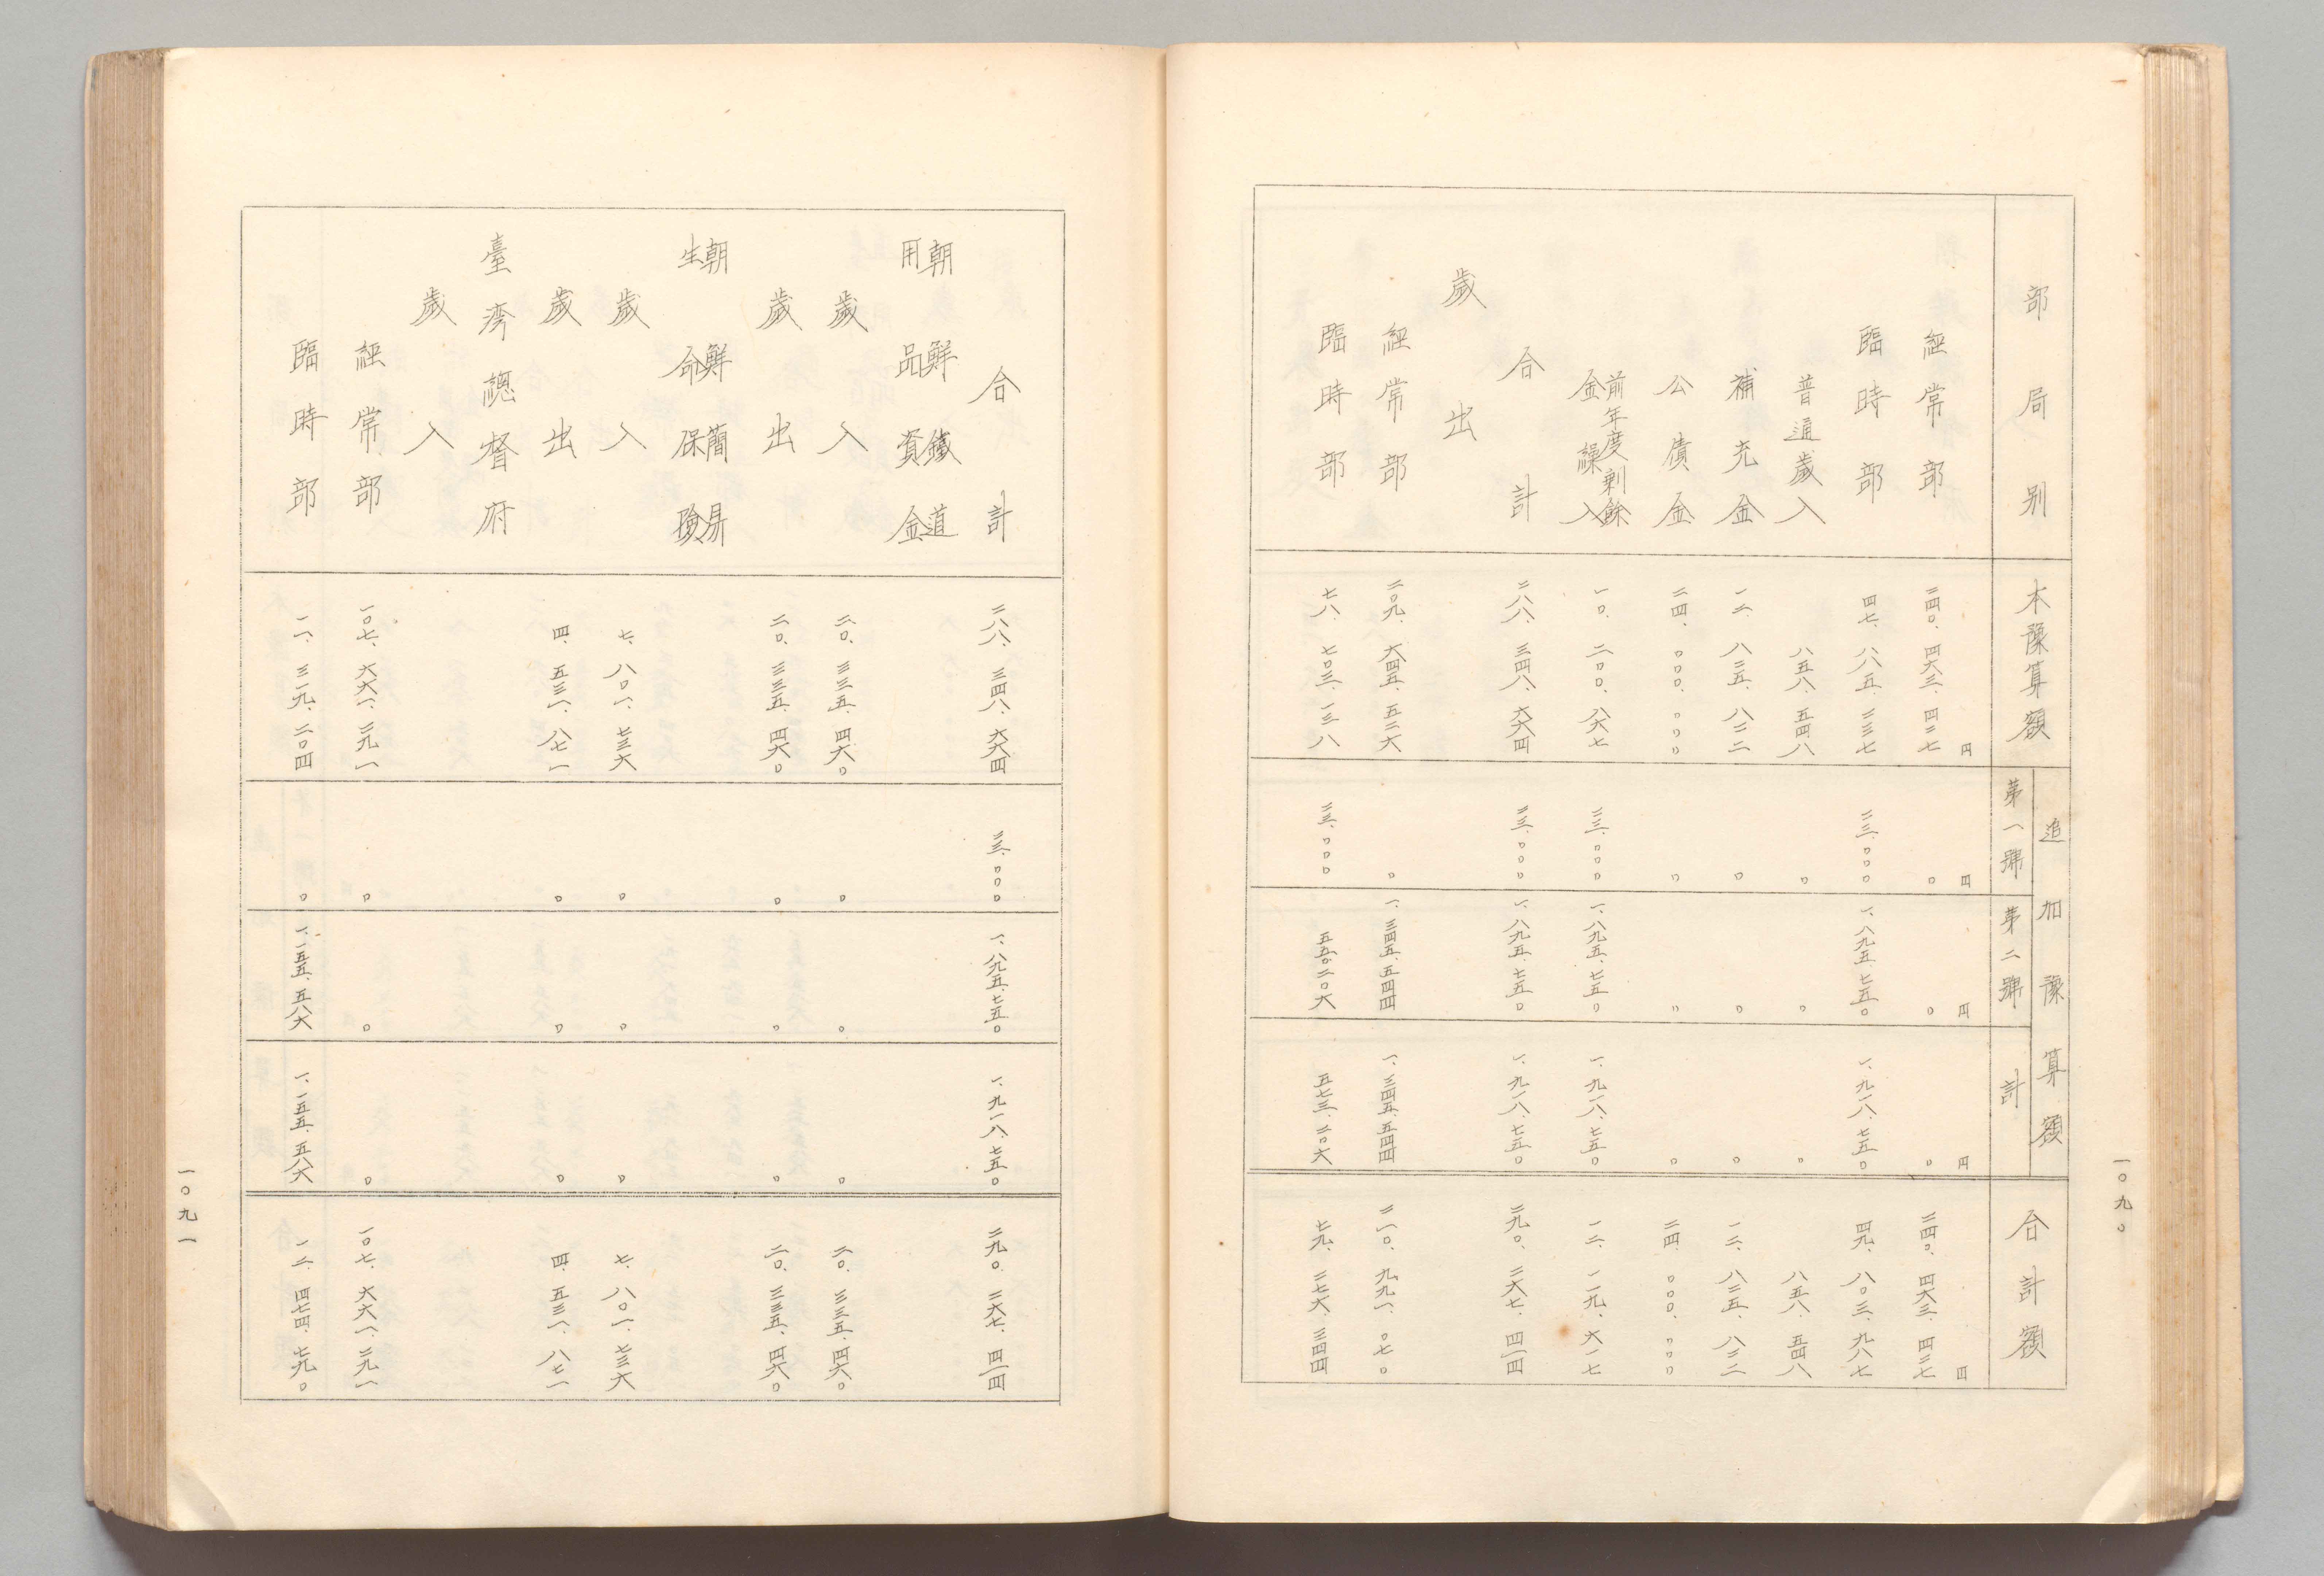 一〇九〇
部局別 本豫算額 追加豫算額 合計額
第一號 第二號 計
円 円 円 円 円
經常部 二四〇、四六三、四二七 〇 〇 〇 二四〇、四六三、四二七
臨時部 四七、八八五、二三七 二三、〇〇〇 一、八九五、七五〇 一、九一八、七五〇 四九、八〇三、九八七
普通歳入 八五八、五四八 〇 〇 〇 八五八、五四八
補充金 一二、八二五、八二二 〇 〇 〇 一二、八二五、八二二
公債金 二四、〇〇〇、〇〇〇 〇 〇 〇 二四、〇〇〇、〇〇〇
前年度剰餘
金繰入 一〇、二〇〇、八六七 二三、〇〇〇 一、八九五、七五〇 一、九一八、七五〇 一二、一一九、六一七
合計 二八八、三四八、六六四 二三、〇〇〇 一、八九五、七五〇 一、九一八、七五〇 二九〇、二六七、四一四
歳出
經常部 二〇九、六四五、五二六 〇 一、三四五、五四四 一、三四五、五四四 二一〇、九九一、〇七〇
臨時部 七八、七〇三、一三八 二三、〇〇〇 五五〇、二〇六 五七三、二〇六 七九、二七六、三四四
合計 二八八、三四八、六六四 二三、〇〇〇 一、八九五、七五〇 一、九一八、七五〇 二九〇、二六七、四一四
朝鮮鐵道
用品資金
歳入 二〇、三三五、四六〇 〇 〇 〇 二〇、三三五、四六〇
歳出 二〇、三三五、四六〇 〇 〇 〇 二〇、三三五、四六〇
朝鮮簡易
生命保險
歳入 七、八〇一、七三六 〇 〇 〇 七、八〇一、七三六
歳出 四、五三一、八七一 〇 〇 〇 四、五三一、八七一
臺湾總督府
歳入
經常部 一〇七、六六一、二九一 〇 〇 〇 一〇七、六六一、二九一
臨時部 一一、三一九、二〇四 〇 一、一五五、五八六 一、一五五、五八六 一二、四七四、七九〇
一〇九一